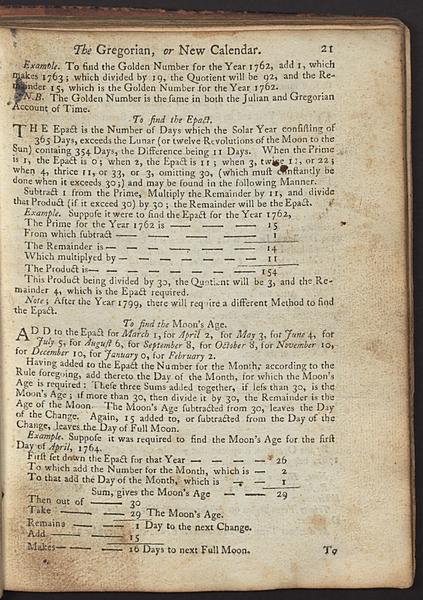 The Gregorian, or New Calendar. 21
Example. To find the Golden Number for the Year 1762, add 1, which
makes 1763; which divided by 19, the Quotient will be 92, and the Re-
mainder 15, which is the Golden Number for the Year 1762.
N.B. The Golden Number is the same in both the Julian and Gregorian
Account of Time.
To find the Epact.
THE Epact is the Number of Days which the Solar Year consisting of
365 Days, exceeds the Lunar (or twelve Revolutions of the Moon to the
Sun) containg 354 Days, the Difference being 11 Days. When the Prime
is 1, the Epact is 0; when 2, the Epact is 11; when 3, twice 11, or 22;
when 4, thrice 11, or 33, or 3, omitting 30, (which must constantly be
done when it exceeds 30;) and may be found in the following Manner.
Subtract 1 from the Prime, Multiply the Remainder by 11, and divide
that Product (if it exceed 30) by 30; the Remainder will be the Epact.
Example. Suppose it were to find the Epact for the Year 1762,
The Prime for the Year 1762 is — — — — 15
From which subtract — — — — — 1
The Remainder is — — — — — 14
Which multiplyed by — — — — — 11
The Product is — — — — — — 154
This Product being divided by 30, the Quotient will be 3, and the Re-
mainder 4, which is the Epact required.
Note; After the Year 1799, there will require a different Method to find
the Epact.
To find the Moon's Age.
ADD to the Epact for March 1, for April 2, for May 3, for June 4, for
July 5, for August 6, for September 8, for October 8, for November 10,
for December 10, for January 0, for February 2.
Having added to the Epact the Number for the Month, according to the
Rule foregoing, add thereto the Day of the Month, for which the Moon's
Age is required: These three Sums added together, if less than 30, is the
Moon's Age; if more than 30, then divide it by 30, the Remainder is the
Age of the Moon. The Moon's Age subtracted from 30, leaves the Day
of the Change. Again, 15 added to, or subtracted from the Day of the
Change, leaves the Day of Full Moon.
Example. Suppose it was required to find the Moon's Age for the first
Day of April, 1764.
First set down the Epact for that Year — — — — 26
To which add the Number for the Month, which is — 2
To that add the Day of the Month, which is — — 1
Sum, gives the Moon's Age — — 29
Then out of — — 30
Take — — — 29 The Moon's Age.
Remains — — 1 Day to the next Change.
Add — — — 15
Makes — — — 16 Days to next Full Moon. To